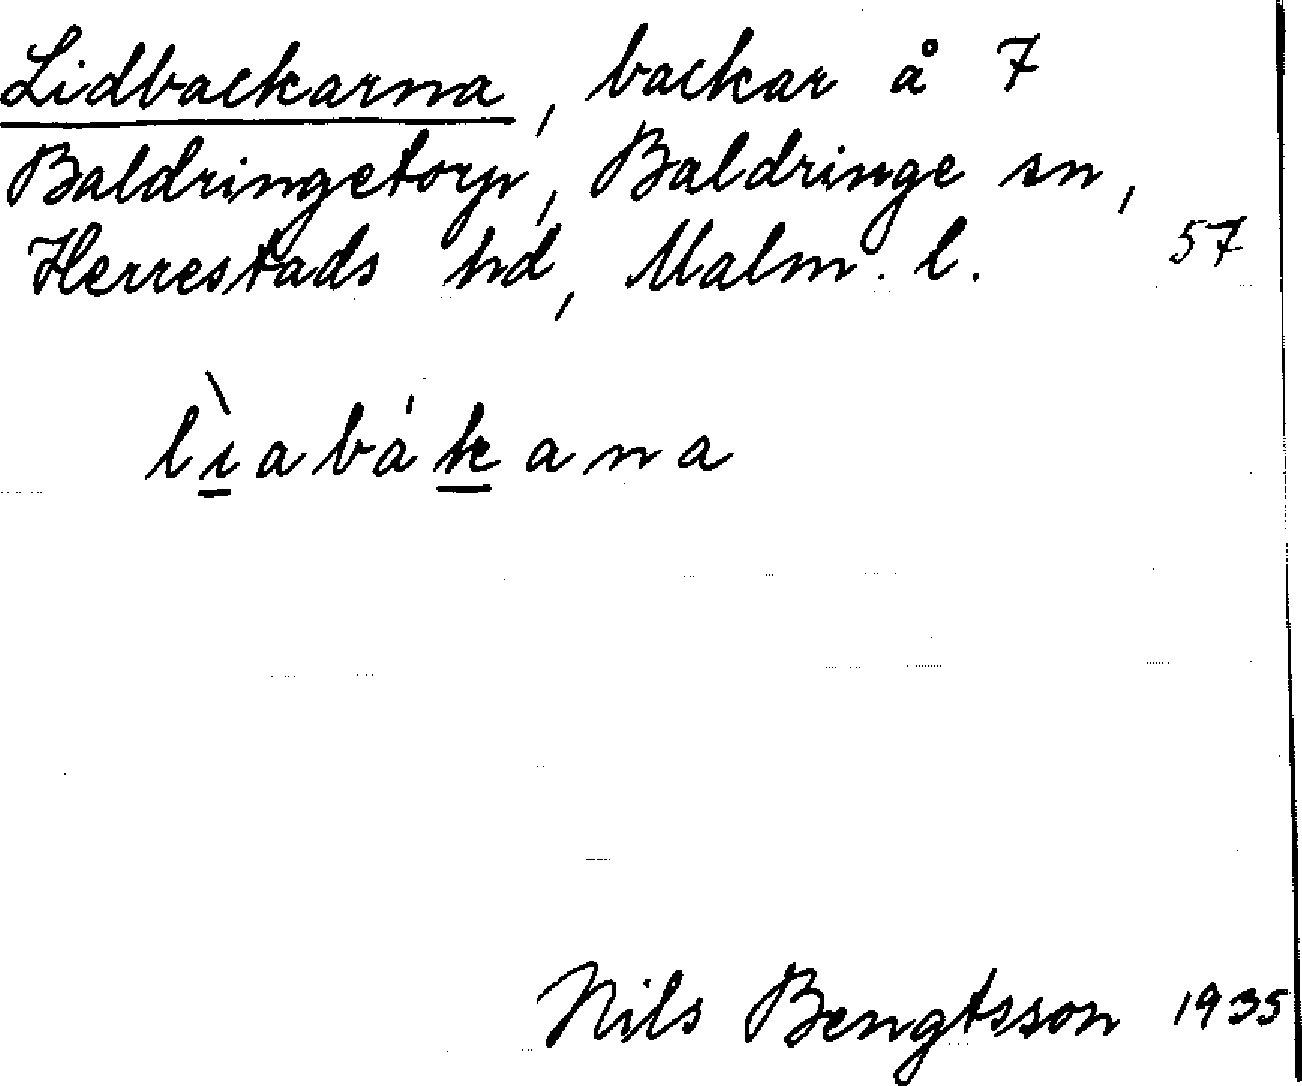 Lidbackarna, backar å 7
Baldringetorp, Baldringe sn,
Herrestads hd, Malm. l. 57
lìabákana
Nils Bengtsson 1935